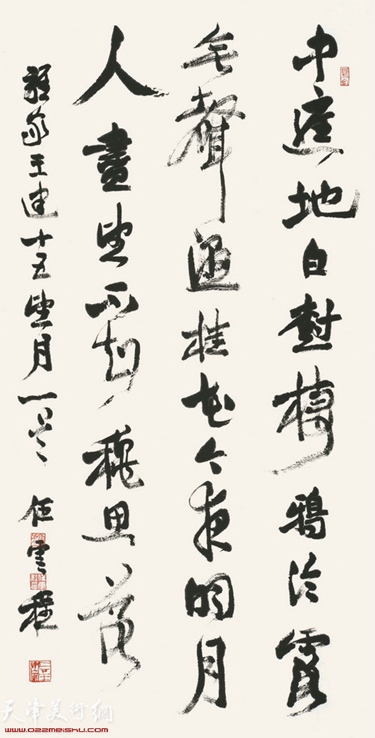 中庭地白樹棲鴉冷露
无聲濕桂花今夜明月
人盡望不知秋思落
誰家王建十五望月一首 雲
天津美术网
www.022meishu.com